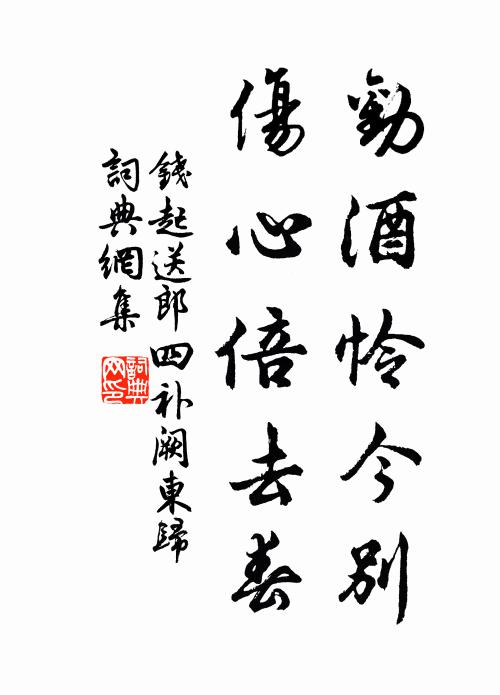 勸酒怜今別
傷心倍去春
錢起送郎四补闕東歸
詞典網集
詞典网印